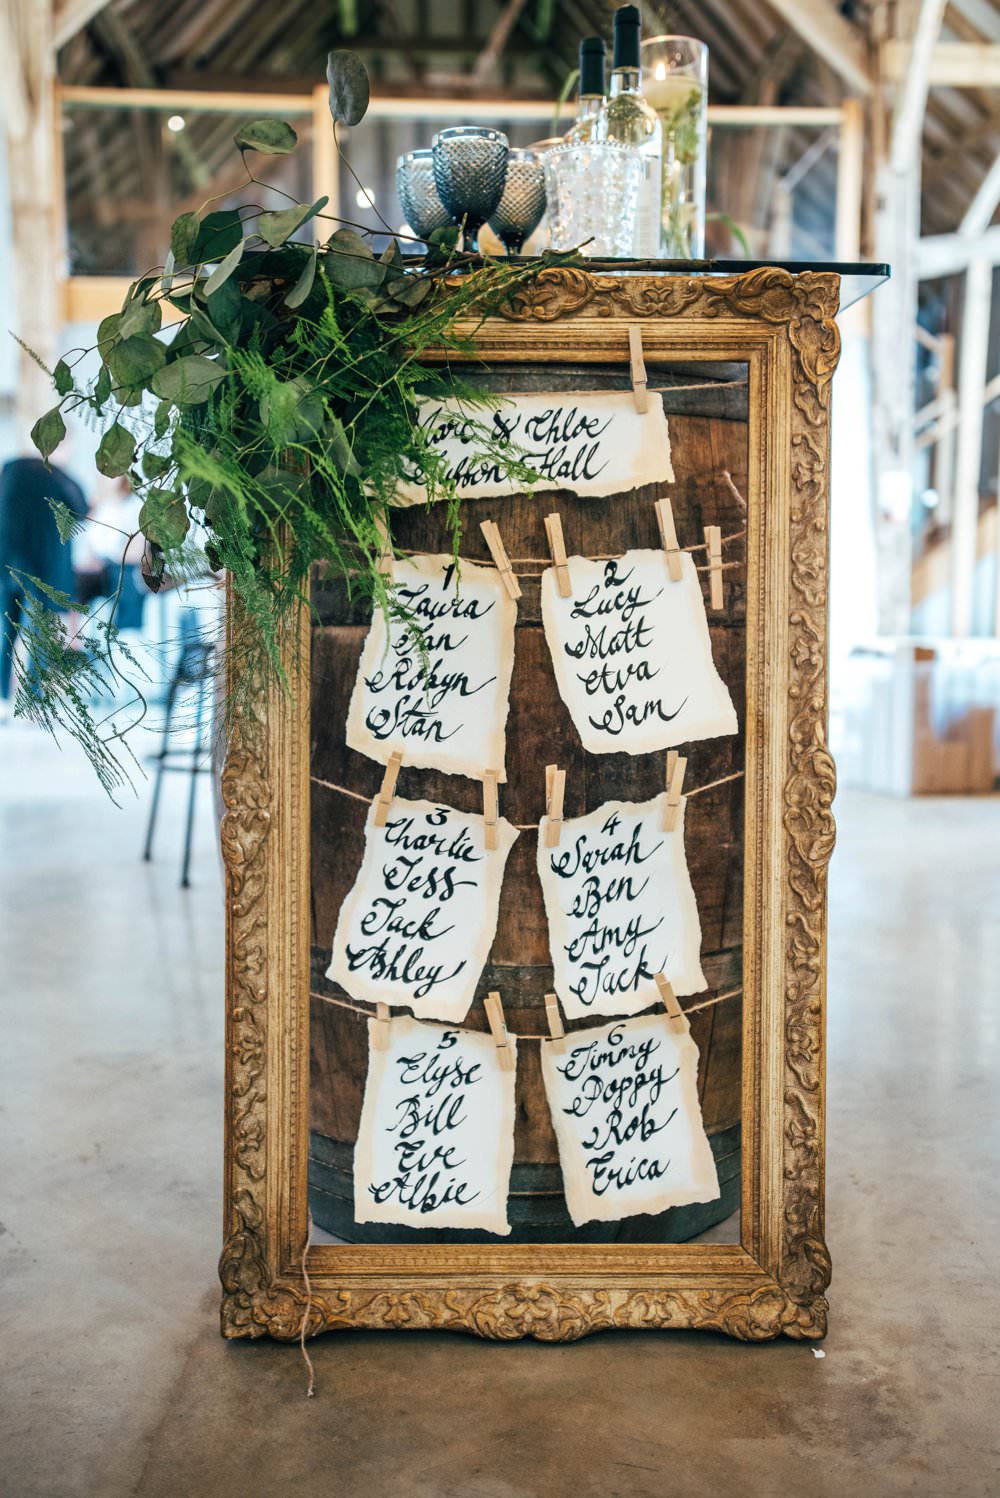 Marc & Chloe
Hall
1
Laura
Ian
Robyn
Stan
2
Lucy
Matt
Ava
Sam
3
Charlie
Jess
Jack
Ashley
4
Sarah
Ben
Amy
Jack
5
Elyse
Bill
Eve
Albie
6
Jimmy
Poppy
Rob
Erica